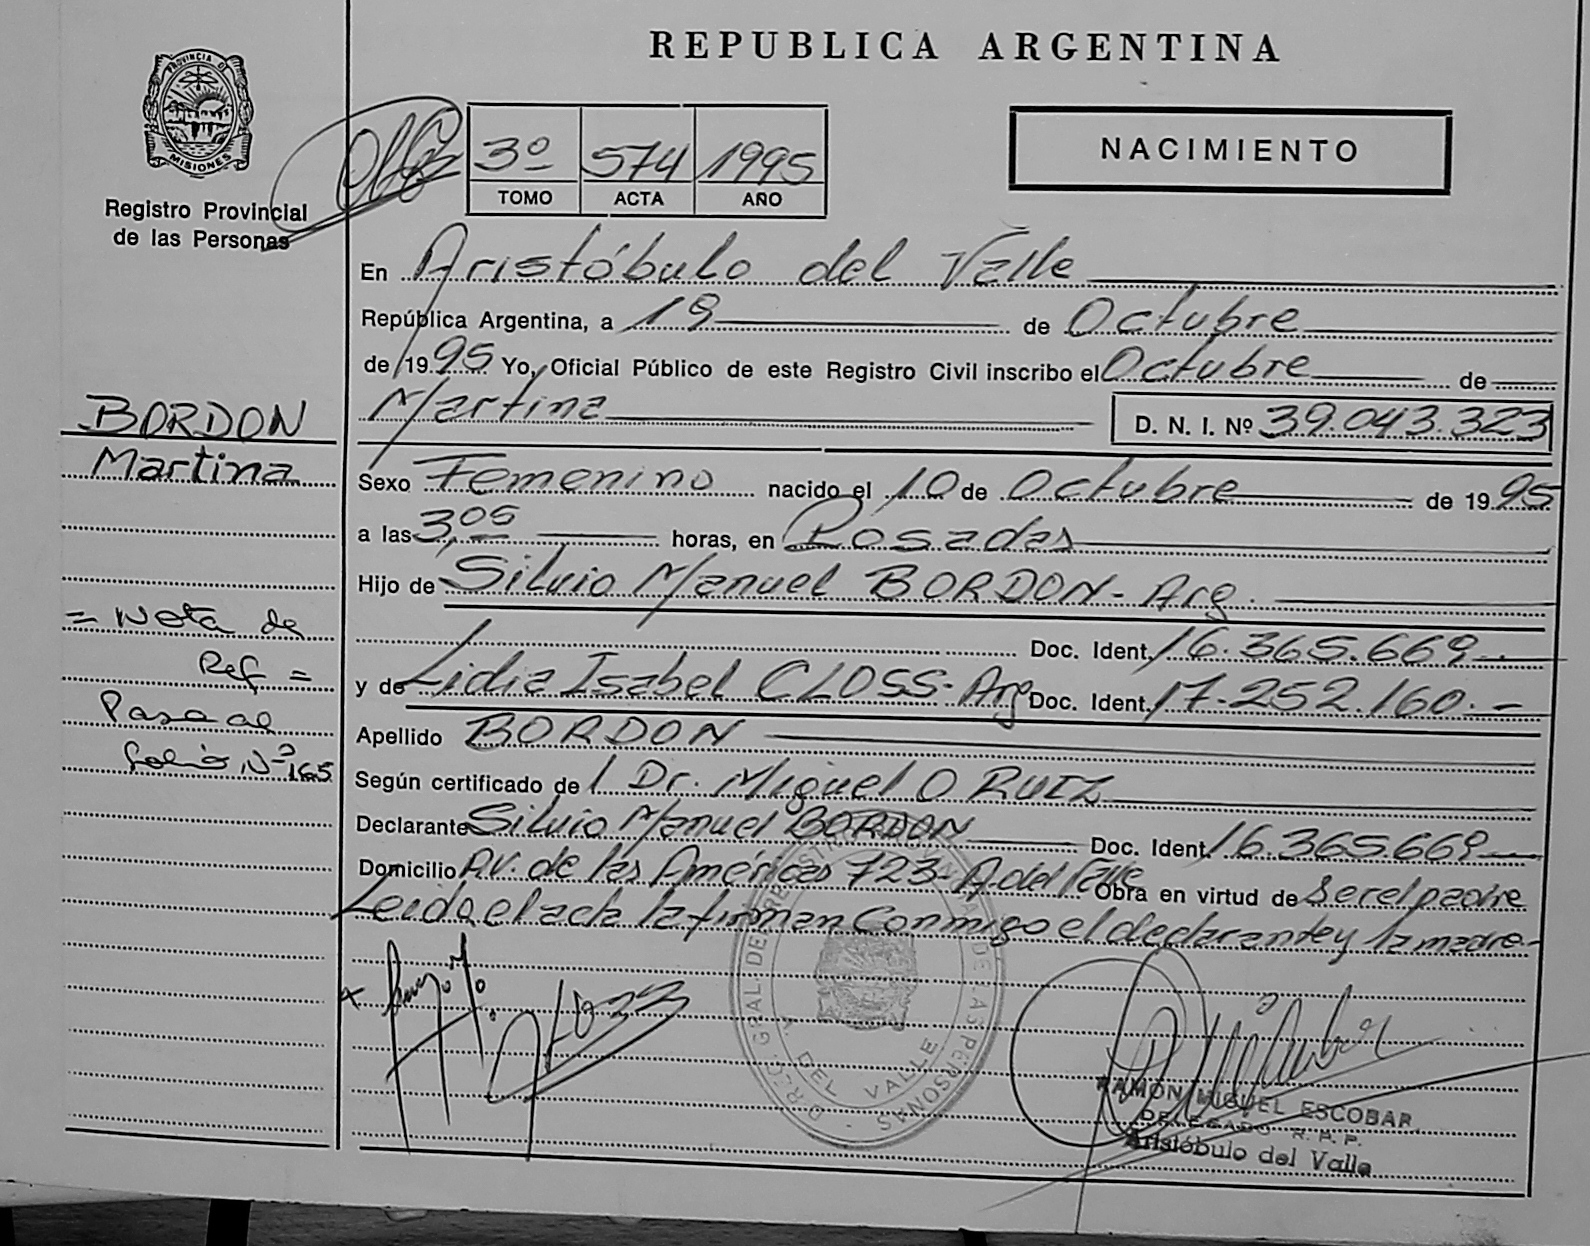 REPUBLICA ARGENTINA
PROVINCIA DE
MISIONES
Registro Provincial
de las Personas
3º 574 1995
TOMO ACTA AÑO
NACIMIENTO
En Aristóbulo del Valle
República Argentina, a 19 de Octubre
de 1995 Yo, Oficial Público de este Registro Civil inscribo el Octubre de
Martina D. N. I. Nº 39.043.323
BORDON
Martina
Sexo Femenino nacido el 10 de Octubre de 1995
a las 3,05 horas, en Posadas
Hijo de Silvio Manuel BORDON - Arg.
Doc. Ident. 16.365.669
y de Lidia Isabel CLOSS - Arg Doc. Ident. 17.252.160.-
Apellido BORDON
Según certificado de l Dr. Miguel O RUIZ
Declarante Silvio Manuel BORDON Doc. Ident. 16.365.669
Domicilio AV. de las Américas 723 - A. del Valle Obra en virtud de Ser el padre
Leida el acta la firman Conmigo el declarante y la madre.-
= Nota de
Ref =
Pasa al
folio Nº 165
DIREC. GRAL. DE REGISTRO DE LAS PERSONAS
A. DEL VALLE
RAMON MIGUEL ESCOBAR
DELEGADO R. P. P.
Aristóbulo del Valle